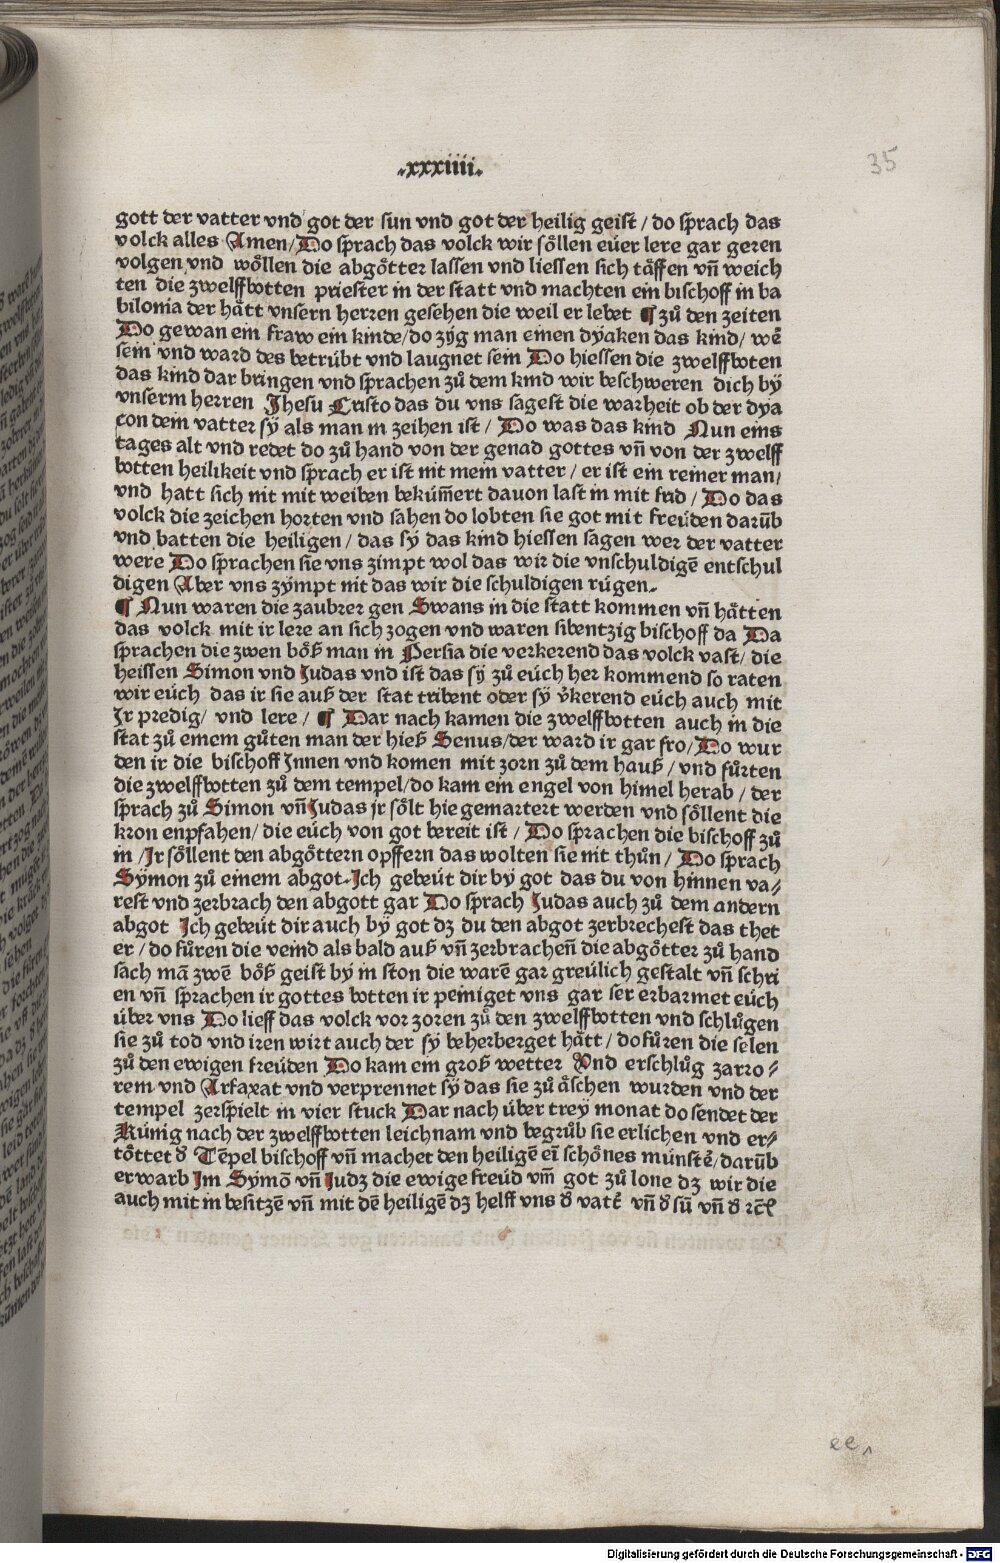 .xxxiiii.
35
gott der vatter vnd got der sun vnd got der heilig geist / do sprach das
volck alles Amen/Do sprach das volck wir sǒllen eüer lere gar geren
volgen vnd wǒllen die abgǒtter lassen vnd liessen sich tåffen vn̄ weich
ten die zwelffbotten priester in der statt vnd machten ein bischoff in ba
bilonia der hått vnsern herren gesehen die weil er lebet ¶ zů den zeiten
Do gewan ein fraw ein kinde/do zÿg man einen dyaken das kind/ wē
sein vnd ward des betrübt vnd laugnet sein Do hiessen die zwelffboten
das kind dar bringen vnd sprachen zů dem kind wir beschweren dich bÿ
vnserm herren Jhesu Cristo das du vns sagest die warheit ob der dya
con dein vatter sÿ als man in zeihen ist / Do was das kind Nun eins
tages alt vnd redet do zů hand von der genad gottes vn̄ von der zwelff
botten heilikeit vnd sprach er ist nit mein vatter / er ist ein reiner man/
vnd hatt sich nit mit weiben beküm̄ert dauon last in mit frid / Do das
volck die zeichen horten vnd sahen do lobten sie got mit freüden darūb
vnd batten die heiligen / das sÿ das kind hiessen sagen wer der vatter
were Do sprachen sie vns zimpt wol das wir die vnschuldigē entschul
digen Aber vns zÿmpt nit das wir die schuldigen rügen.
¶ Nun waren die zaubrer gen Swans in die statt kommen vn̄ håtten
das volck mit ir lere an sich zogen vnd waren sibentzig bischoff da Da
sprachen die zwen bǒß man in Persia die verkerend das volck vast/ die
heissen Simon vnd Judas vnd ist das sÿ zů eüch her kommend so raten
wir eüch das ir sie auß der stat tribent oder sÿ v̄kerend eüch auch mit
Jr predig/ vnd lere / ¶ Dar nach kamen die zwelffbotten auch in die
stat zů einem gůten man der hieß Senus/der ward ir gar fro/Do wur
den ir die bischoff Jnnen vnd komen mit zorn zů dem hauß / vnd fůrten
die zwelffbotten zů dem tempel/do kam ein engel von himel herab / der
sprach zů Simon vn̄ Judas jr sǒlt hie gemartert werden vnd sǒllent die
kron enpfahen/ die eüch von got bereit ist / Do sprachen die bischoff zů
in /Jr sǒllent den abgǒttern opffern das wolten sie nit thůn / Do sprach
Sÿmon zů einem abgot.Jch gebeüt dir by got das du von hinnen va/
rest vnd zerbrach den abgott gar Do sprach Judas auch zů dem andern
abgot Jch gebeüt dir auch bÿ got dz du den abgot zerbrechest das thet
er / do fůren die veind als bald auß vn̄ zerbrachen̄ die abgǒtter zů hand
sach mā zwē bǒß geist bÿ in ston die warē gar greülich gestalt vn̄ schri
en vn̄ sprachen ir gottes botten ir peiniget vns gar ser erbarmet eüch
über vns Do lieff das volck vor zoren zů den zwelffbotten vnd schlůgen
sie zů tod vnd iren wirt auch der sÿ beherberget hått/ do fůren die selen
zů den ewigen freüden Do kam ein groß wetter Vnd erschlůg zarro/
rem vnd Arfaxat vnd verprennet sÿ das sie zů åschen wurden vnd der
tempel zerspielt in vier stuck Dar nach über trey monat do sendet der
Künig nach der zwelffbotten leichnam vnd begrůb sie erlichen vnd er/
tǒttet d̄ Tēpel bischoff vn̄ machet den heiligē ei̅ schǒnes münstē/darūb
erwarb Jm Sÿmō vn̄ Judz die ewige freüd vm̄ got zů lone dz wir die
auch mit in besitzē vn̄ mit dē heiligē dz helff vns d̄ vatē vn̄ d̄ sū vn̄ d̄ rc̄ꝭ
ee
Digitalisierung gefördert durch die Deutsche Forschungsgemeinschaft - DFG